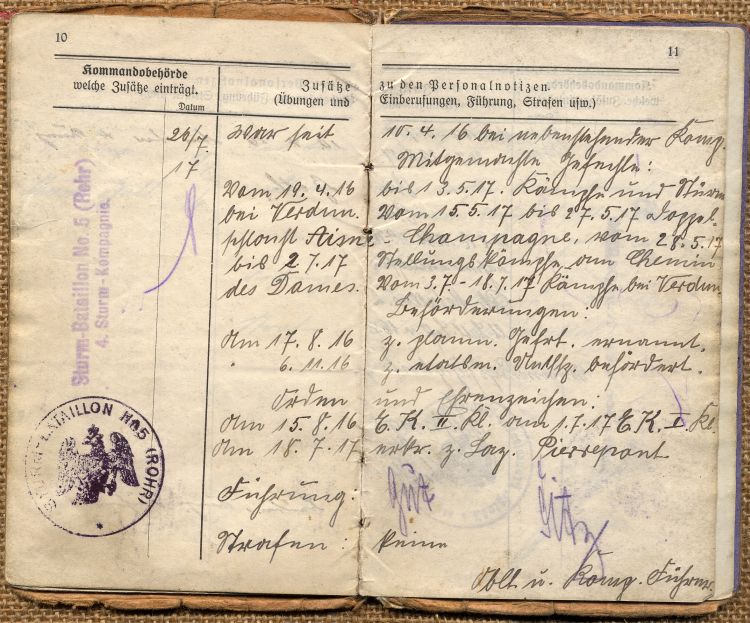 10
11
Kommandobehörde
welche Zusätze einträgt.
Datum
Zusätze
(Übungen und
zu den Personalnotizen.
Einberufungen, Führung, Strafen usw.)
Sturm-Bataillon No. 5 (Rohr)
4. Sturm-Kompagnie.
26/7. War seit 10. 4. 16 bei nebenstehender Komp.
17 Mitgemachte Gefechte:
Vom 19. 4. 16 bis 13.5.17. Kämpfe und Sturm
bei Verdun. Vom 15.5.17 bis 27.5.17 Doppel-
schlacht Aisne - Champagne, vom 28.5.17
bis 2.7.17 Stellungskämpfe am Chemin
des Dames. Vom 3.7.-18.7.17 Kämpfe bei Verdun.
Beförderungen:
Am 17. 8. 16 z. planm. Gefrt. ernannt.
" 6. 11. 16 z. etatsm. Untffz. befördert.
Orden und Ehrenzeichen:
Am 15. 8. 16 E. K. II. Kl. am 1.7.17 E. K. I. Kl.
Am 18. 7. 17 erkr. z. Laz. Pierrepont
Führung: Gut
Strafen: keine
Oblt. u. Komp. Führer.
STURM-BATAILLON No. 5 (ROHR)